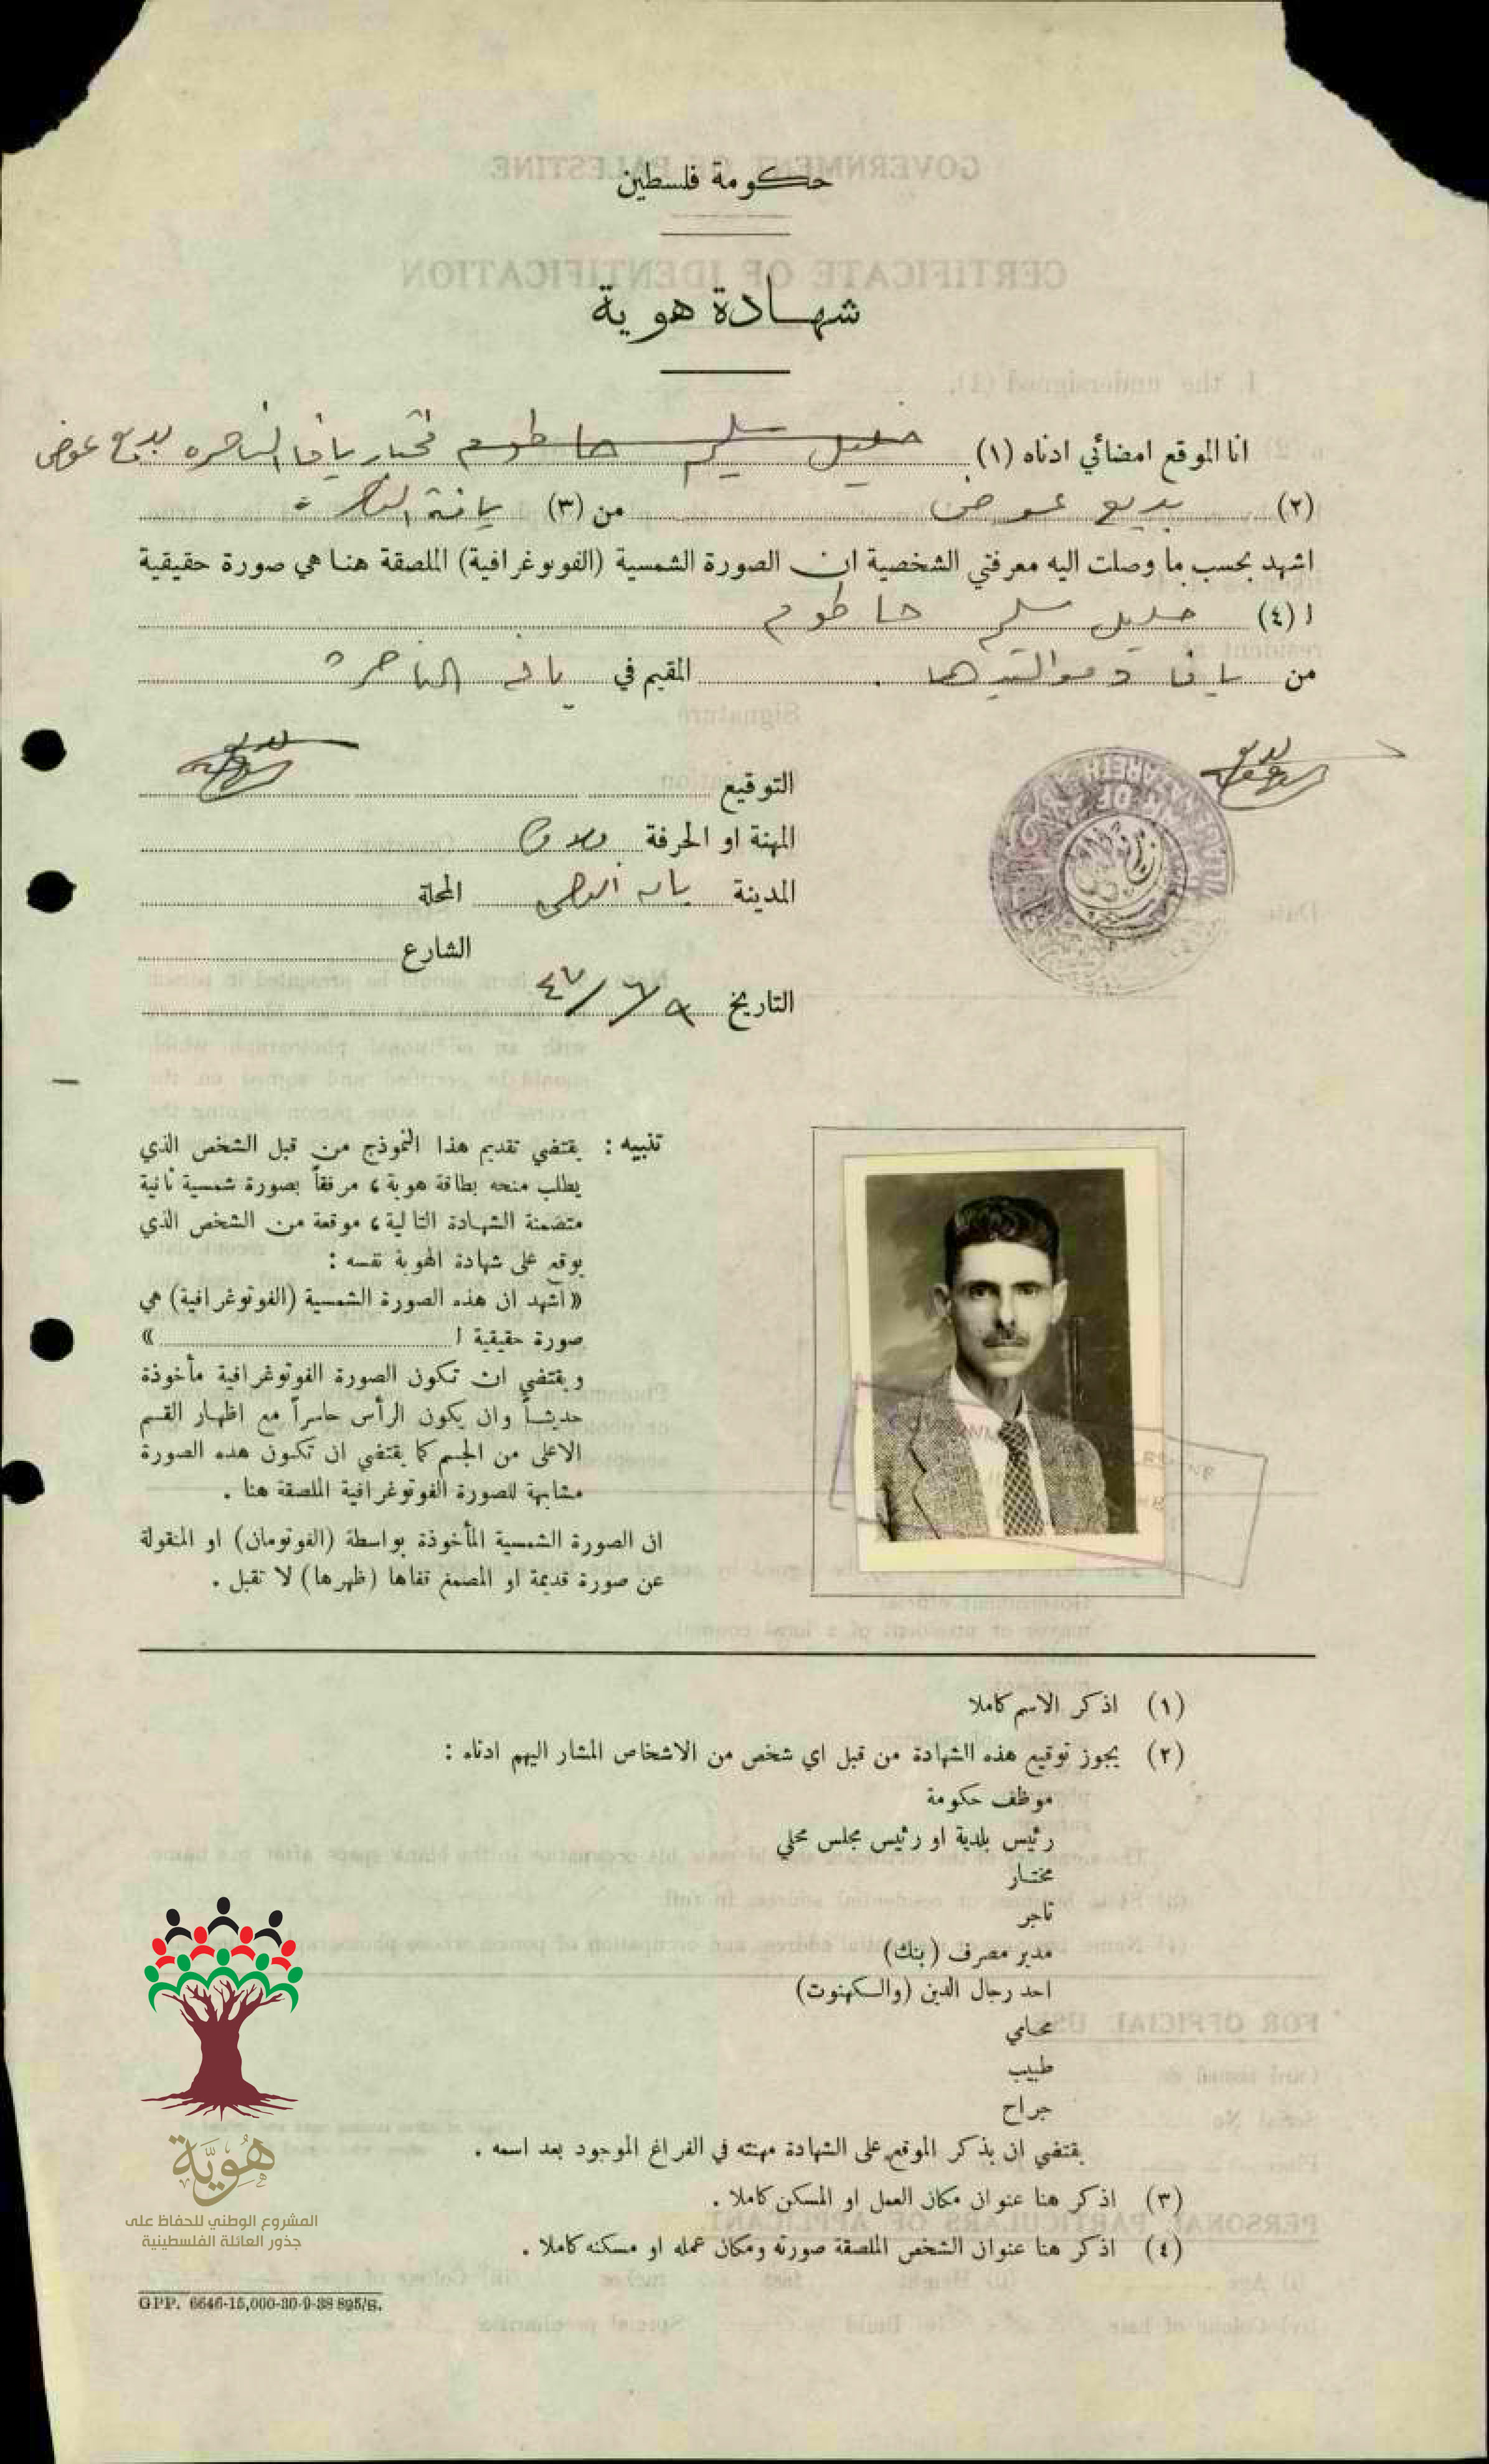 حكومة فلسطين
شهادة هوية
انا الموقع امضائي ادناه (١) خليل سليم حاطوم مختار يافا الناصره بديع عوض
(٢) بديع عوض من (٣) يافة الناصرة
اشهد بحسب ما وصلت اليه معرفتي الشخصية ان الصورة الشمسية (الفوتوغرافية) الملصقة هنا هي صورة حقيقية
ا (٤) خليل سليم حاطوم
من يافا المقيم في يافة الناصرة
التوقيع
المهنة او الحرفة فلاح
المدينة يافة الناصرة المحلة
الشارع
التاريخ ٩/٦/٤٧
تنبيه : يقتضي تقديم هذا النموذج من قبل الشخص الذي
يطلب منحه بطاقة هوية ، مرفقاً بصورة شمسية ثانية
متضمنة الشهادة التالية ، موقعة من الشخص الذي
يوقع على شهادة الهوية نفسه :
«اشهد ان هذه الصورة الشمسية (الفوتوغرافية) هي
صورة حقيقية ا »
ويقتضي ان تكون الصورة الفوتوغرافية مأخوذة
حديثاً وان يكون الرأس حاسراً مع اظهار القسم
الاعلى من الجسم كما يقتضي ان تكون هذه الصورة
مشابهة للصورة الفوتوغرافية الملصقة هنا .
ان الصورة الشمسية المأخوذة بواسطة (الفوتومان) او المنقولة
عن صورة قديمة او المصمغ قفاها (ظهرها) لا تقبل .
(١) اذكر الاسم كاملا
(٢) يجوز توقيع هذه الشهادة من قبل اي شخص من الاشخاص المشار اليهم ادناه :
موظف حكومة
رئيس بلدية او رئيس مجلس محلي
مختار
تاجر
مدير مصرف (بنك)
احد رجال الدين (والكهنوت)
محامي
طبيب
جراح
يقتضي ان يذكر الموقع على الشهادة مهنته في الفراغ الموجود بعد اسمه .
(٣) اذكر هنا عنوان مكان العمل او المسكن كاملا .
(٤) اذكر هنا عنوان الشخص الملصقة صورته ومكان عمله او مسكنه كاملا .
هُوِيَّة
المشروع الوطني للحفاظ على
جذور العائلة الفلسطينية
GPP. 6646-15,000-30-9-38 895/S.